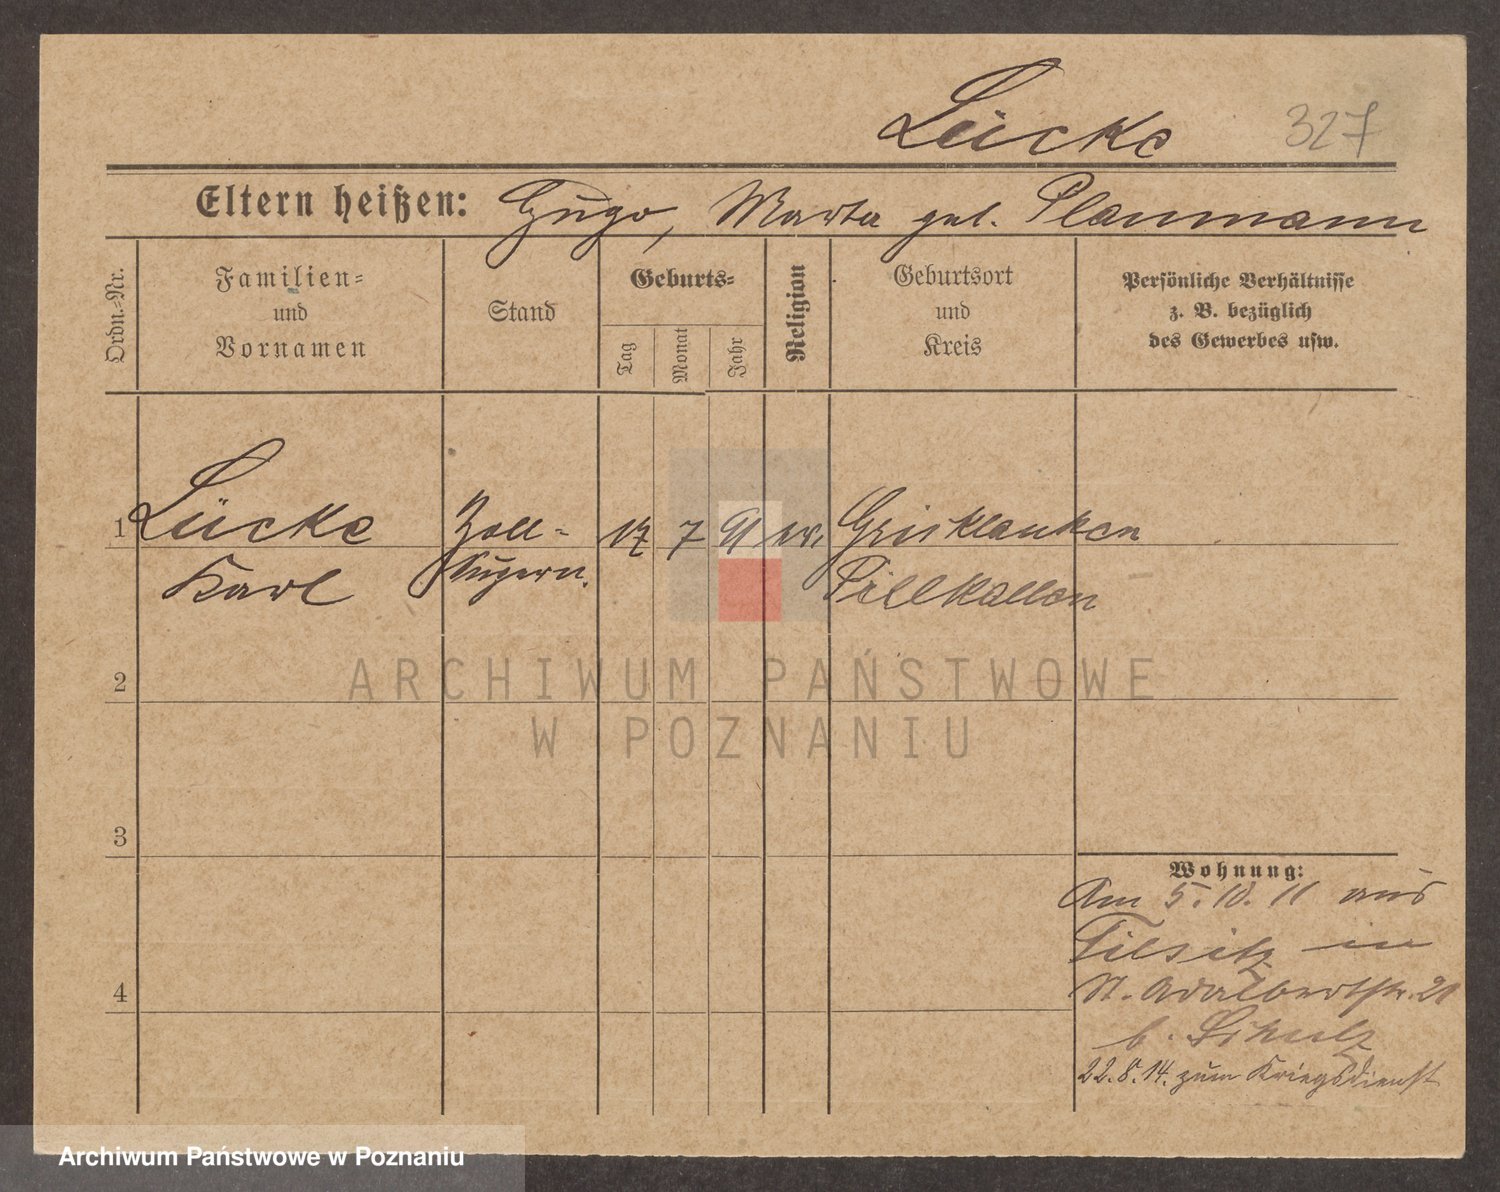 Lücke 327
Eltern heißen: Hugo, Marta geb. Plaumann
Ordn.-Nr.
Familien-
und
Vornamen
Stand
Geburts-
Tag
Monat
Jahr
Religion
Geburtsort
und
Kreis
Persönliche Verhältnisse
z. B. bezüglich
des Gewerbes usw.
1 Lücke Zoll- 17 7 91 ev. Grisklauken
Karl Supern. Pillkallen
2
3
4
Wohnung:
Am 5.10.11 aus
Tilsit in
St. Adalbertstr. 20
b. Schulz
22.8.14. zum Kriegsdienst
ARCHIWUM PAŃSTWOWE
W POZNANIU
Archiwum Państwowe w Poznaniu